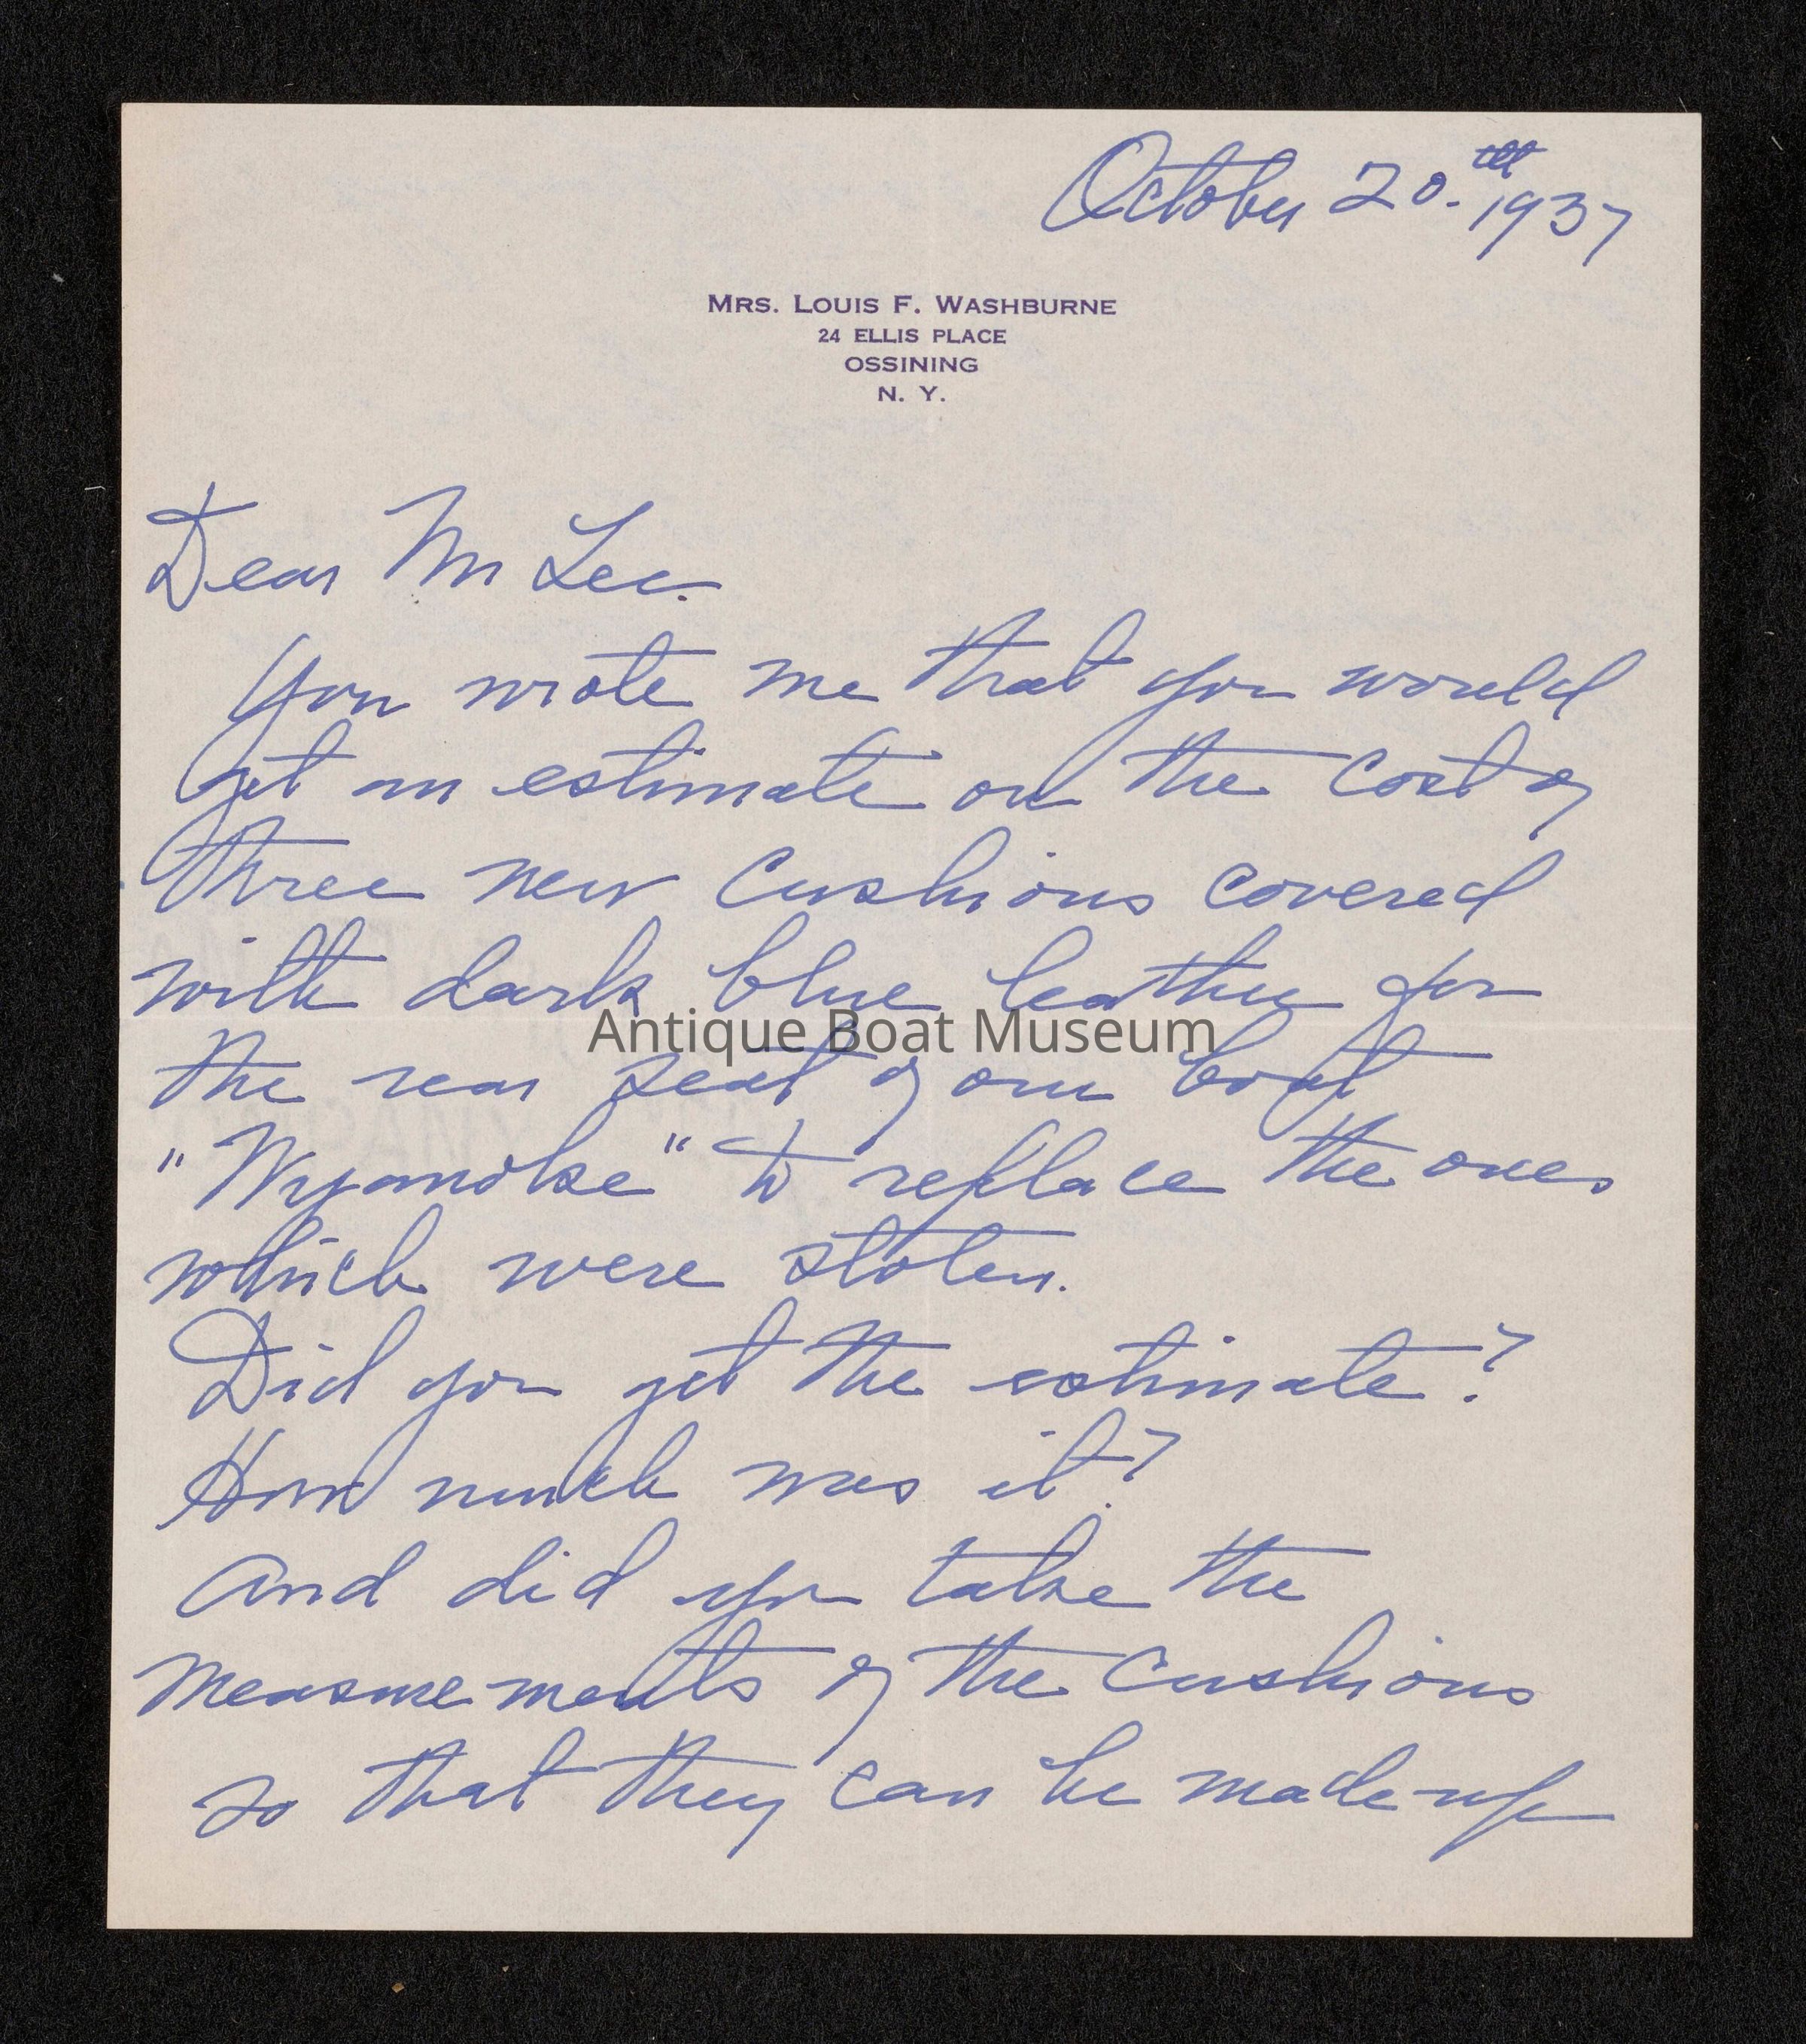 October 20.th 1937
MRS. LOUIS F. WASHBURNE
24 ELLIS PLACE
OSSINING
N. Y.
Dear Mr Lee.
You wrote me that you would
get an estimate on the cost of
three new cushions covered
with dark blue leather for
Antique Boat Museum
the rear seat of our boat
"Wyanoke" to replace the ones
which were stolen.
Did you get the estimate?
How much was it?
And did you take the
measurements of the cushions
so that they can be made up